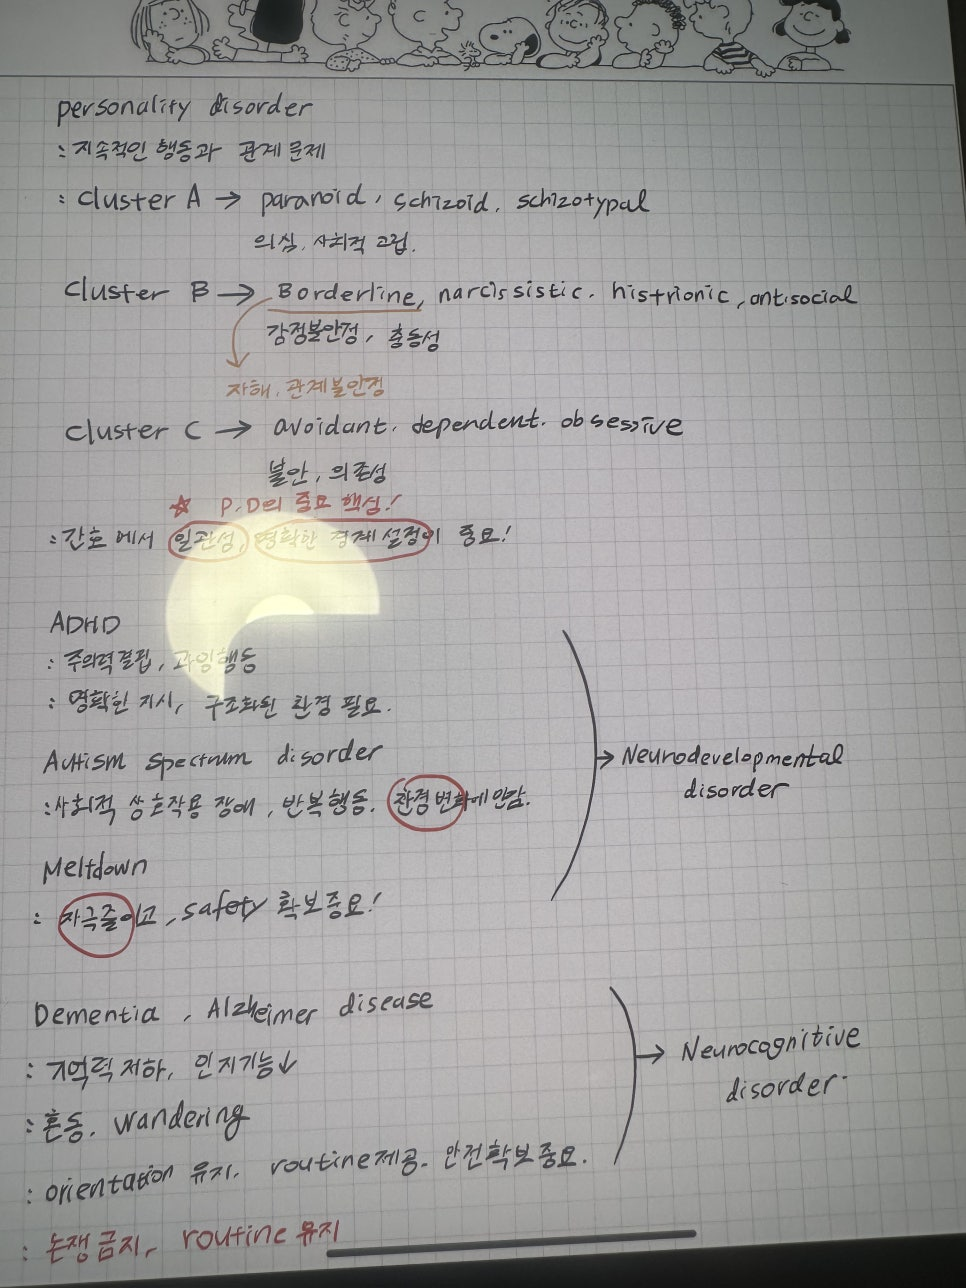 personality disorder
: 지속적인 행동과 관계 문제
: cluster A → paranoid, schizoid, schizotypal
의심, 사회적 고립.
cluster B → Borderline, narcissistic, histrionic, antisocial
감정불안정, 충동성
자해, 관계불안정
cluster C → avoidant, dependent, obsessive
불안, 의존성
☆ P.D의 중요 핵심!
: 간호에서 일관성, 명확한 경계 설정이 중요!
ADHD
: 주의력결핍, 과잉행동
: 명확한 지시, 구조화된 환경 필요.
Autism spectrum disorder
: 사회적 상호작용 장애, 반복행동, 환경변화에 민감.
→ Neurodevelopmental
disorder
Meltdown
: 자극줄이고, safety 확보중요!
Dementia, Alzheimer disease
: 기억력저하, 인지기능↓
: 혼동, wandering
→ Neurocognitive
disorder
: orientation 유지, routine제공. 안전확보중요.
: 논쟁금지, routine 유지